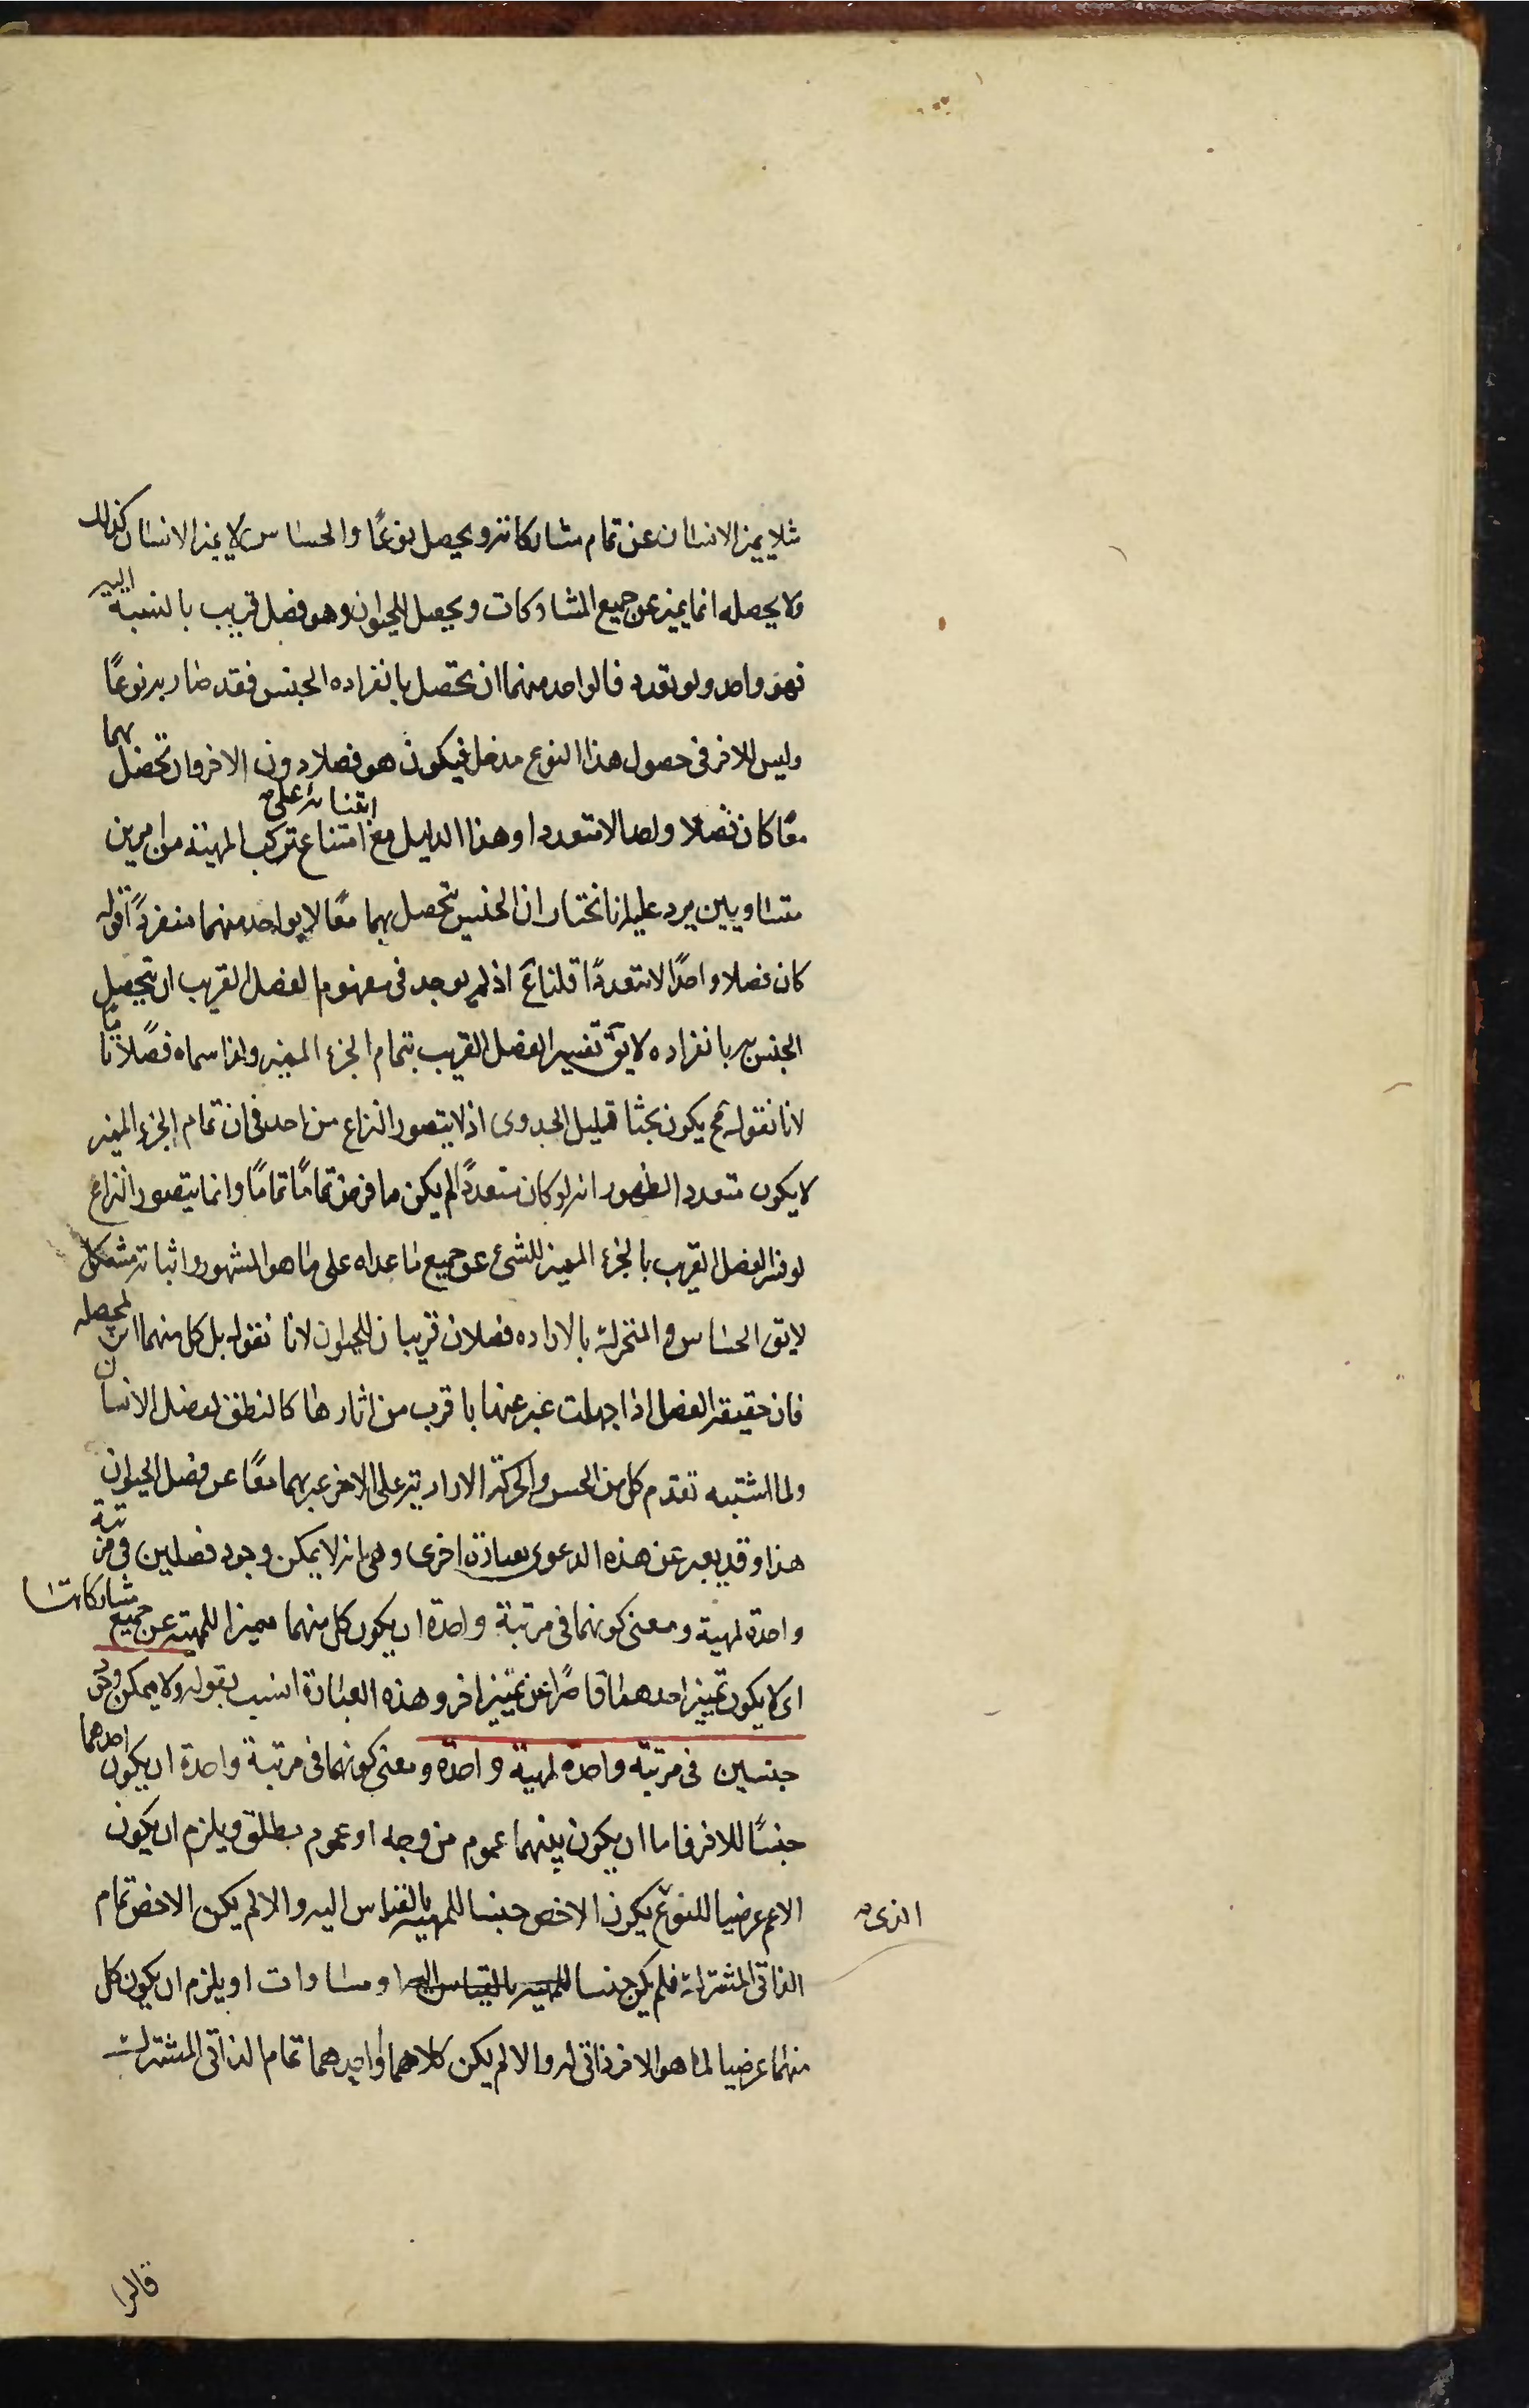 مثلا يميز الانسان عن تمام مشاركاته ويحصل نوعًا والحساس لا يميز الانسان كذلك
ولا يحصله انما يميز عن جميع المشاركات ويحصل الحيوان وهو فصل قريب بالنسبة اليه
فهو واحد ولو تعدد فالواحد منهما ان يحصل بانفراده الجنس فقد صار به نوعًا
وليس للاخر في حصول هذا النوع مدخل فيكون هو فصلا دون الاخر وان تحصل بهما
معًا كان فصلا واحدا لا متعددا وهذا الدليل مع ابتنائه على امتناع تركب المهية من امرين
متساويين يرد عليه انا نختار ان الجنس تحصل بهما معًا لا بواحد منهما منفردًا قوله
كان فصلا واحدًا لا متعددًا قلنا مم اذ لم يوجد في مفهوم الفصل القريب ان يتحصل
الجنس به بانفراده لا يق تفسير الفصل القريب بتمام الجزء المميز ولذا سماه فصلًا تاما
لانا نقول ح يكون بحثا قليل الجدوى اذ لا يتصور النزاع من احد في ان تمام الجزء المميز
لا يكون متعددا لظهور انه لو كان متعددًا لم يكن ما فرض تمامًا تمامًا وانما يتصور النزاع
لو فسر الفصل القريب بالجزء المميز للشئ عن جميع ما عداه على ما هو المشهور واثباته مشكل
لا يق الحساس والمتحرك بالاراده فصلان قريبان للحيوان لانا نقول بل كل منهما اثر لمحصله
فان حقيقة الفصل اذا جهلت عبر عنها باقرب من اثارها كالنطق لفصل الانسان
ولما اشتبه تقدم كل من الحس والحركة الارادية على الاخر عبر بهما معًا عن فصل الحيوان
هذا وقد يعبر عن هذه الدعوى بعبارة اخرى وهي انه لا يمكن وجود فصلين في مرتبة
واحدة لمهية ومعنى كونهما في مرتبة واحدة ان يكون كل منهما مميزا للمهية عن جميع مشاركاتها
اى لا يكون تمييز احدهما قاصرًا عن تمييز اخر وهذه العبارة انسب بقوله ولا يمكن وجود
جنسين في مرتبة واحده لمهية واحدة ومعنى كونهما في مرتبة واحدة ان يكون احدهما
جنسًا للاخر فاما ان يكون بينهما عموم من وجه او عموم مطلق ويلزم ان يكون
الاعم عرضيا للنوع يكون الاخص جنسا للمهية بالقياس اليه والا لم يكن الاخص تمام
الذى
الذاتى المشترك فلم يكن جنسا للمهية بالقياس اليه او مساوات او يلزم ان يكون كل
منهما عرضيا لما هو الاخر ذاتى له والا لم يكن كلاهما او احدهما تمام الذاتى المشترك